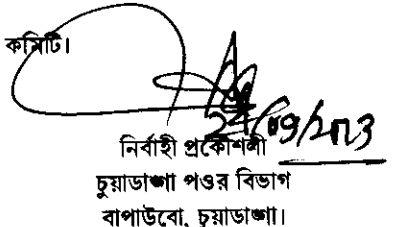 কমিটি।
24/09/2023
নির্বাহী প্রকৌশলী
চুয়াডাঙ্গা পওর বিভাগ
বাপাউবো, চুয়াডাঙ্গা।